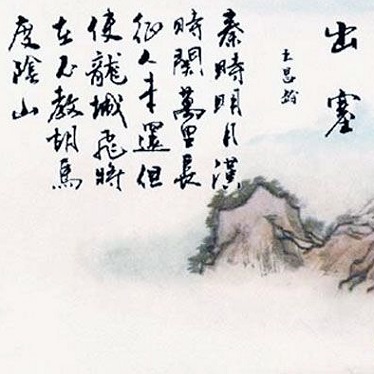 出塞
王昌齡
秦時明月漢
時關萬里長
征人未還但
使龍城飛將
在不教胡馬
度陰山